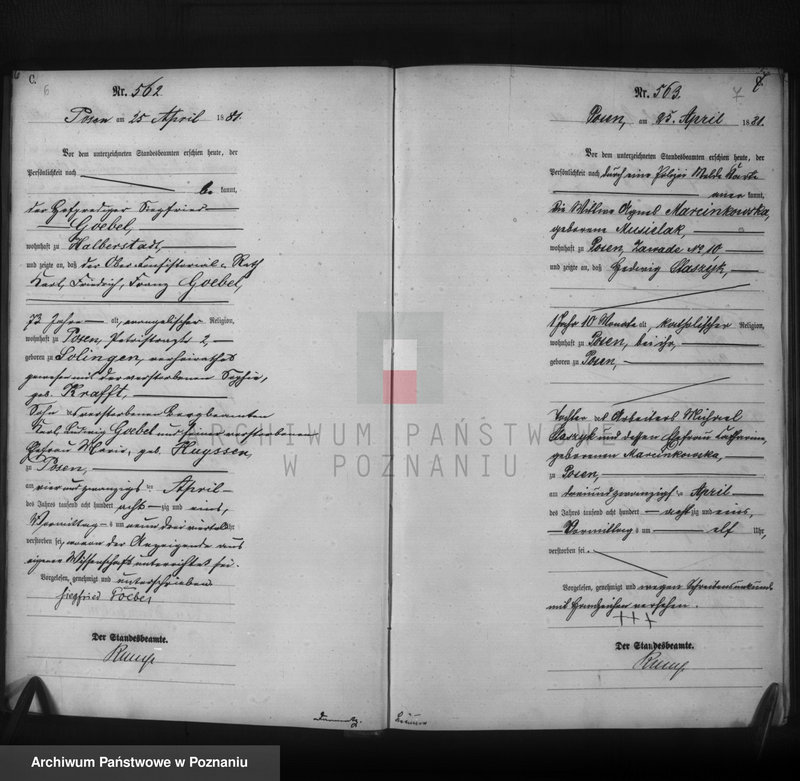 C.
6
Nr. 562
Posen am 25 April 1881.
Vor dem unterzeichneten Standesbeamten erschien heute, der
Persönlichkeit nach
be kannt,
der Hofprediger Siegfried
Goebel,
wohnhaft zu Halberstadt,
und zeigte an, daß der Ober-Consistorial-Rath
Karl, Friedrich, Franz Goebel,
73 Jahre alt, evangelischer Religion,
wohnhaft zu Posen, Petristraße 2,
geboren zu Solingen, verheirathet
gewesen mit der verstorbenen Sophie,
geb. Krafft,
Sohn des verstorbenen Bergbeamten
Karl, Ludwig Goebel und seiner verstorbenen
Ehefrau Maria, geb. Huyssen,
zu Posen,
am vier und zwanzigsten April
des Jahres tausend acht hundert acht zig und eins,
Vormittags um neun drei viertel Uhr
verstorben sei, wovon der Anzeigende aus
eigener Wissenschaft unterrichtet sei.
Vorgelesen, genehmigt und unterschrieben
Siegfried Goebel
Der Standesbeamte.
Rump
7
Nr. 563.
Posen, am 25. April 1881.
Vor dem unterzeichneten Standesbeamten erschien heute, der
Persönlichkeit nach durch eine Polizei Melde Karte
aner kannt,
die Wittwe Agnes Marcinkowska
geborene Musielak,
wohnhaft zu Posen, Zawade No 10
und zeigte an, daß Hedwig Staszyk,
1 Jahr 10 Monate alt, katholischer Religion,
wohnhaft zu Posen, bei ihr,
geboren zu Posen,
Tochter des Arbeiters Michael
Staszyk und dessen Ehefrau Catharina,
geborenen Marcinkowska,
zu Posen,
am dreiundzwanzigsten April
des Jahres tausend acht hundert acht zig und eins,
Vormittags um elf Uhr,
verstorben sei.
Vorgelesen, genehmigt und wegen Schreibensunkunde
mit Handzeichen versehen.
+++
Der Standesbeamte.
Rump
ARCHIWUM PAŃSTWOWE
W POZNANIU
Archiwum Państwowe w Poznaniu